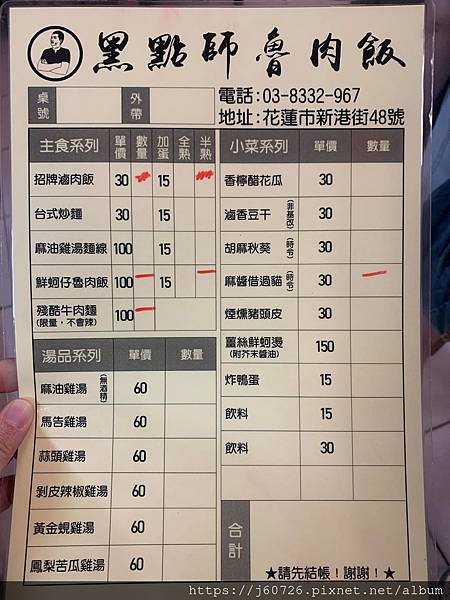 黑點師魯肉飯
桌號 外帶
電話:03-8332-967
地址:花蓮市新港街48號
主食系列 單價 數量 加蛋 全熟 半熟
招牌滷肉飯 30 15
台式炒麵 30 15
麻油雞湯麵線 100 15
鮮蚵仔魯肉飯 100 15
殘酷牛肉麵 100
(限量,不會辣)
湯品系列 單價 數量
麻油雞湯 (無酒精) 60
馬告雞湯 60
蒜頭雞湯 60
剝皮辣椒雞湯 60
黃金蜆雞湯 60
鳳梨苦瓜雞湯 60
小菜系列 單價 數量
香檸醋花瓜 30
滷香豆干 (非基改) 30
胡麻秋葵 (時令) 30
麻醬借過貓 (時令) 30
煙燻豬頭皮 30
薑絲鮮蚵燙 150
(附芥末醬油)
炸鴨蛋 15
飲料 15
飲料 30
合計
★請先結帳!謝謝!★
https://j60726.pixnet.net/album